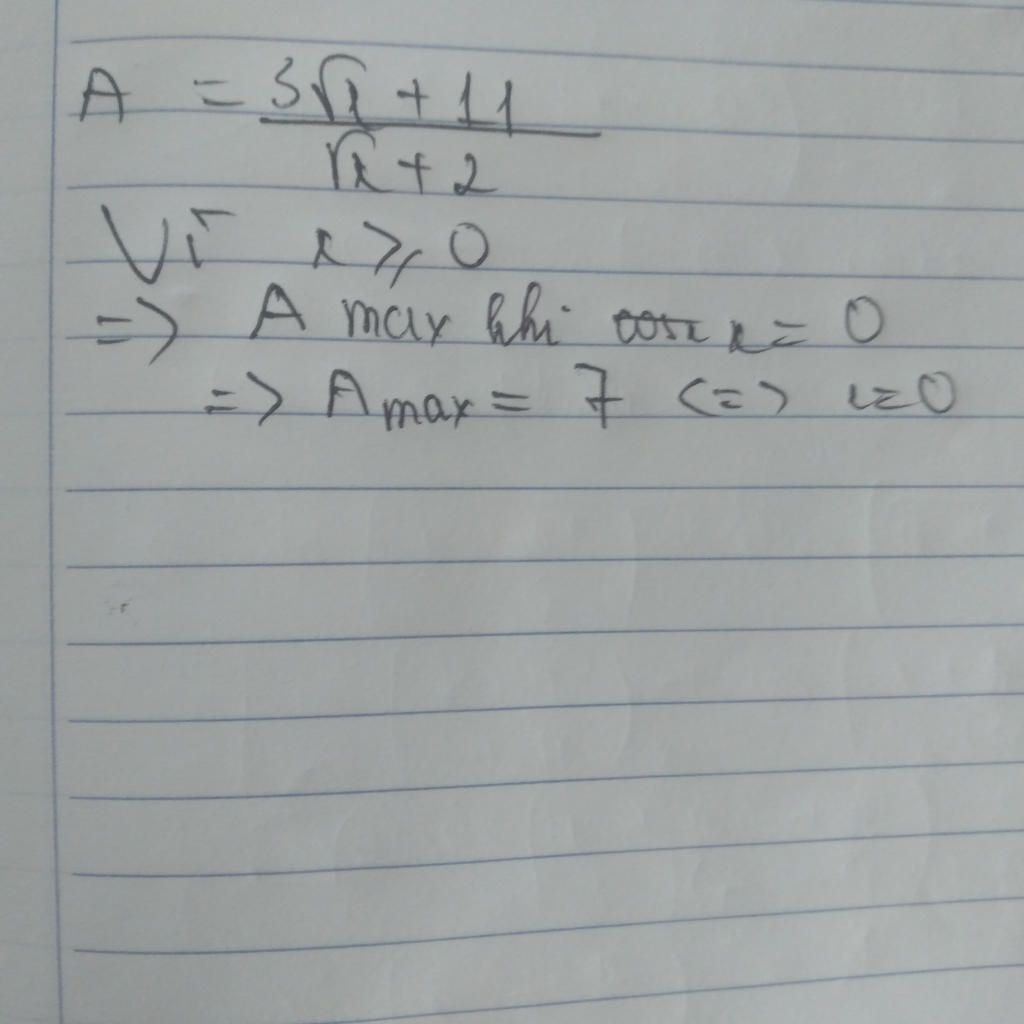 A = (3√x + 11)/(√x + 2)
Vì x ≥ 0
=> A max khi x = 0
=> A max = 7 <=> x=0